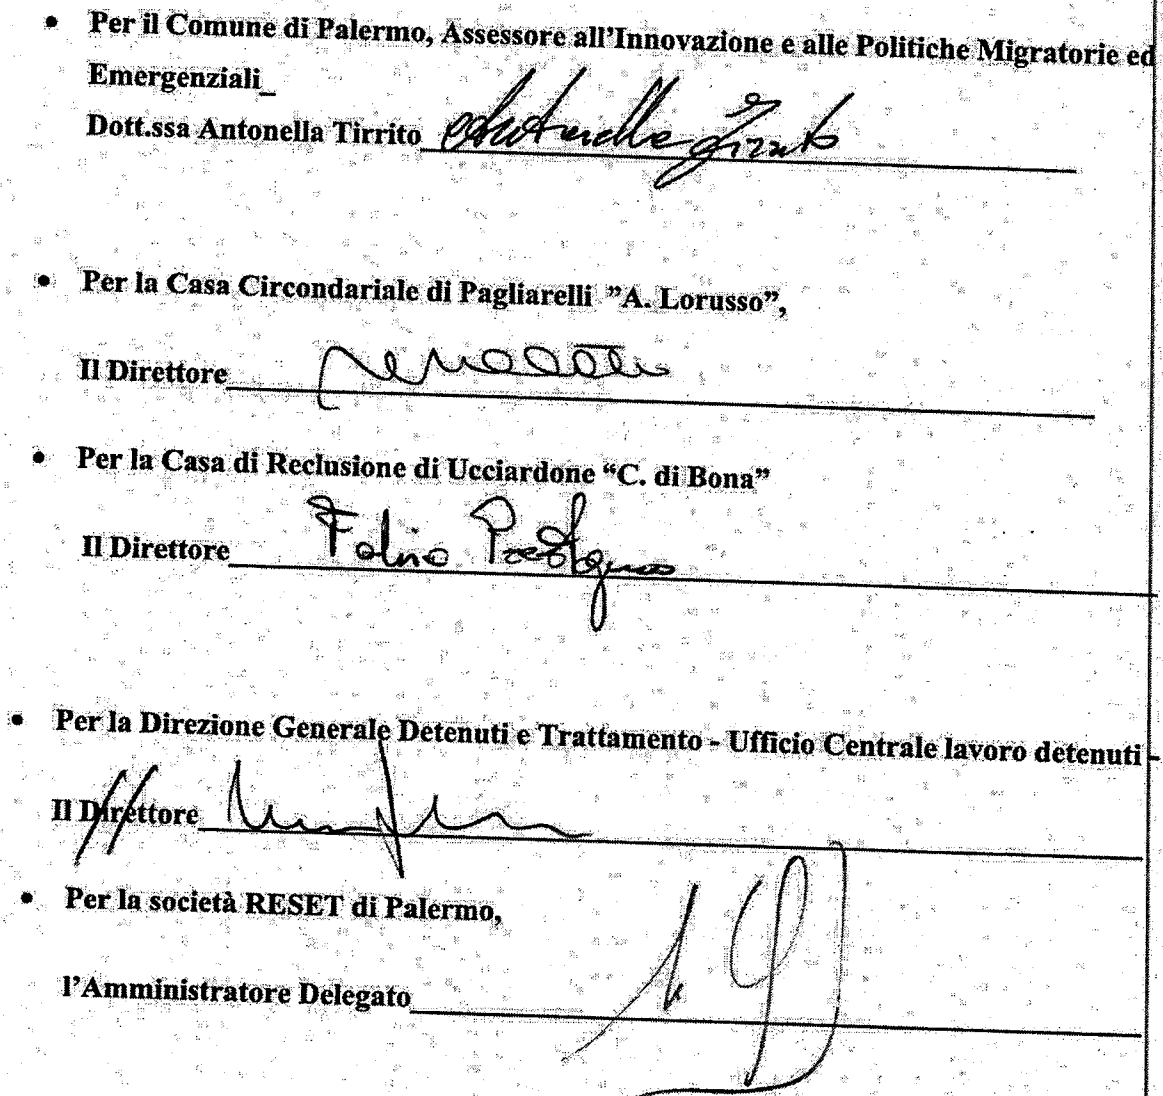 • Per il Comune di Palermo, Assessore all'Innovazione e alle Politiche Migratorie ed
Emergenziali_
Dott.ssa Antonella Tirrito Antonella Tirrito
• Per la Casa Circondariale di Pagliarelli ”A. Lorusso”,
Il Direttore
• Per la Casa di Reclusione di Ucciardone “C. di Bona”
Il Direttore Fabio
• Per la Direzione Generale Detenuti e Trattamento - Ufficio Centrale lavoro detenuti -
Il Direttore
• Per la società RESET di Palermo,
l'Amministratore Delegato